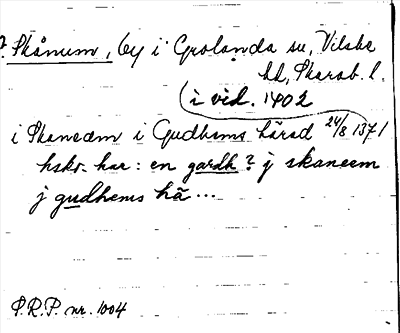 ? Skånum, by i Grolanda sn, Vilske
hd, Skarab. l.
(i vid. 1402
i Skanedm i Gudhems härad 24/8 1371
hskr. har: en gardh ? j skaneem
j gudhems hä...
P.R.P. nr. 1004